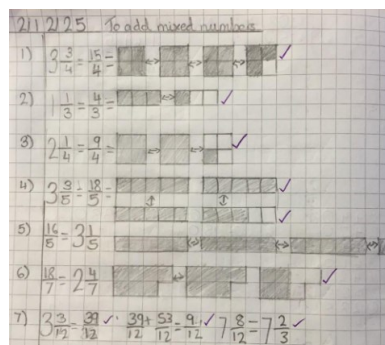 21/2/25 To add mixed numbers
1) 3 3/4 = 15/4 =
2) 1 1/3 = 4/3 =
3) 2 1/4 = 9/4 =
4) 3 3/5 = 18/5 =
5) 16/5 = 3 1/5
6) 18/7 = 2 4/7
7) 3 3/12 = 39/12 39/12 + 53/12 = 92/12 7 8/12 = 7 2/3